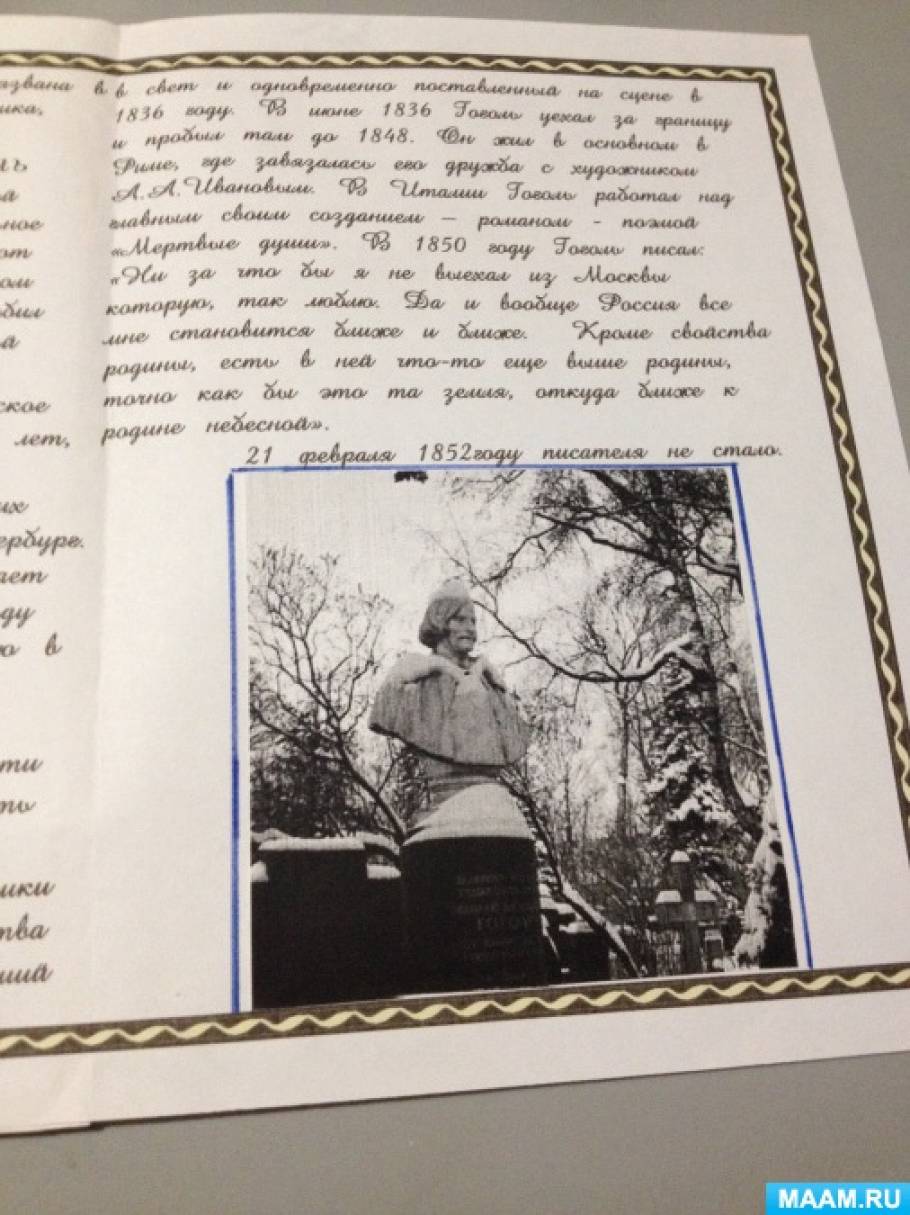 азвана в
ика,
ное
от
ом
бил
ское
лет,
их
ербурге.
ает
ду
ю в
ти
ть
ики
тва
ший
в свет и одновременно поставленный на сцене в
1836 году. В июне 1836 Гоголь уехал за границу
и пробыл там до 1848. Он жил в основном в
Риме, где завязалась его дружба с художником
А.А.Ивановым. В Италии Гоголь работал над
главным своим созданием – романом - поэмой
«Мертвые души». В 1850 году Гоголь писал:
«Ни за что бы я не выехал из Москвы
которую, так люблю. Да и вообще Россия все
мне становится ближе и ближе. Кроме свойства
родины, есть в ней что-то еще выше родины,
точно как бы это та земля, откуда ближе к
родине небесной».
21 февраля 1852году писателя не стало.
MAAM.RU